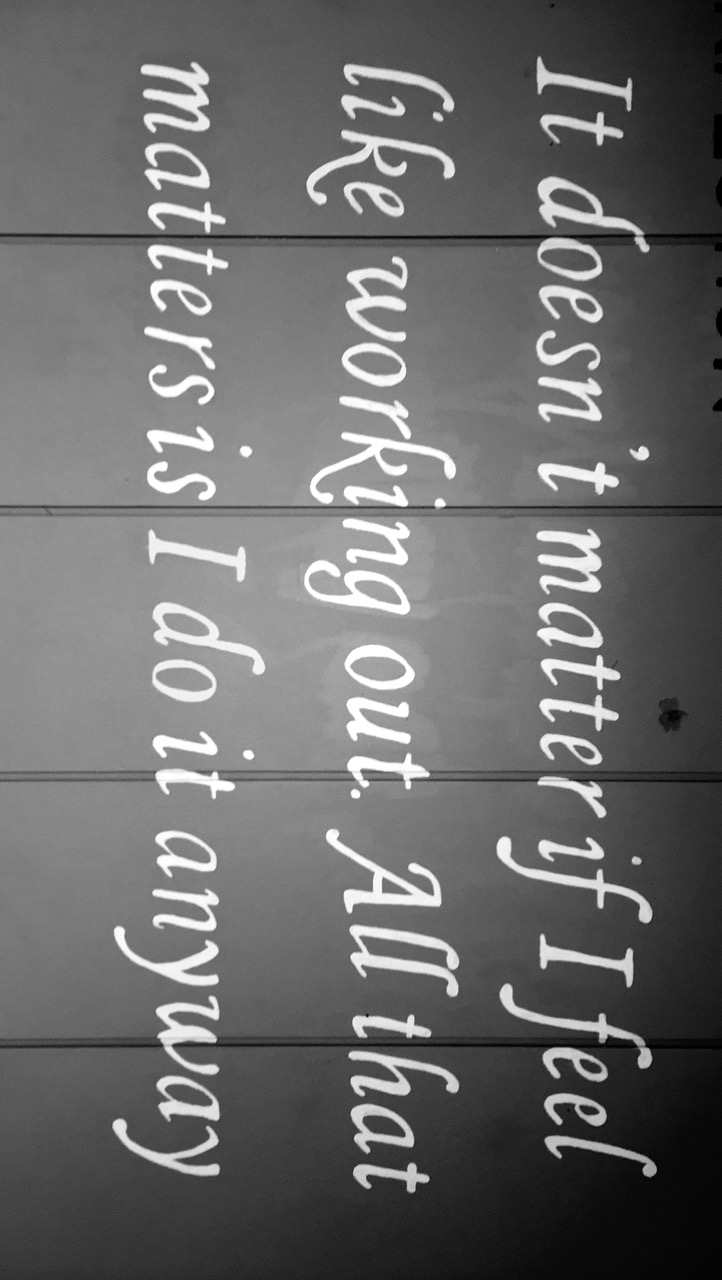 It doesn't matter if I feel
like working out. All that
matters is I do it anyway